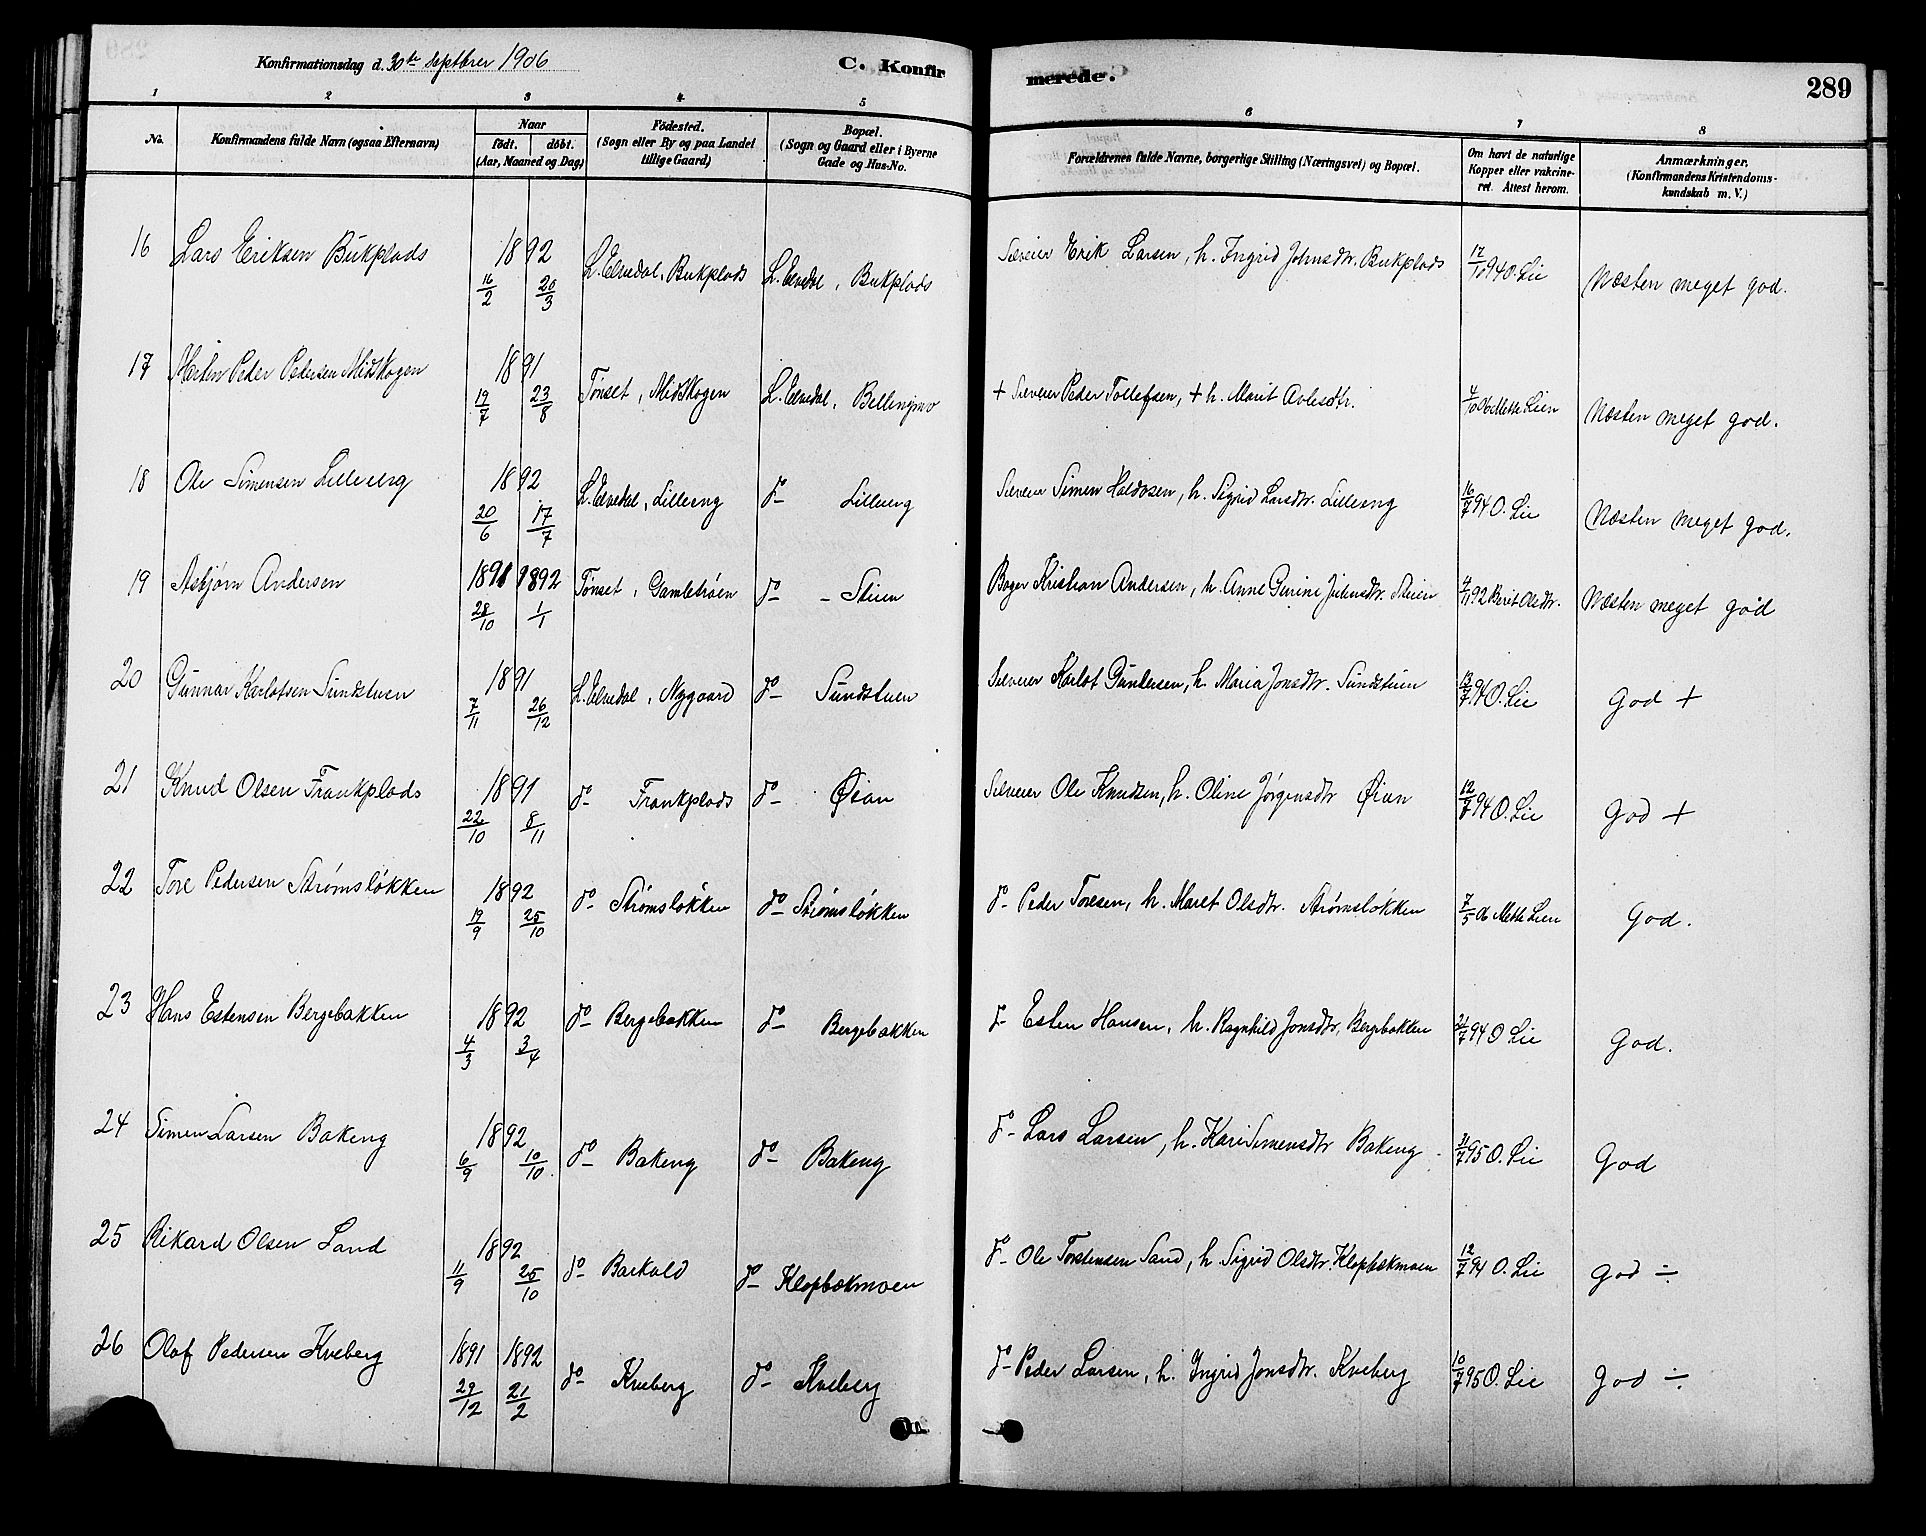 Konfirmationsdag d. 30te Septbrer 1906
C. Konfirmerede.
289
1 2 3 4 5 6 7 8
No.
Konfirmandens fulde Navn (ogsaa Efternavn)
Naar
födt. döbt.
(Aar, Maaned og Dag)
Födested.
(Sogn eller By og paa Landet tillige Gaard)
Bopæl.
(Sogn og Gaard eller i Byerne Gade og Hus-No.
Forældrenes fulde Navne, borgerlige Stilling (Næringsvei) og Bopæl.
Om havt de naturlige Kopper eller vakcineret. Attest herom.
Anmærkninger.
(Konfirmandens Kristendomskundskab m. V.)
16 Lars Eriksen Bukplads 1892 16/2 20/3 L. Elvedal, Bukplads L. Elvedal, Bukplads Selveier Erik Larsen, h. Ingrid Johnsdtr. Bukplads 17/10 94 O. Lie Næsten meget god.
17 Morten Peder Pedersen Midtskogen 1891 19/7 23/8 Tønset, Midtskogen L. Elvedal, Bellingmo + Selveier Peder Tollefsen, + h. Marit Avlesdtr. 4/10 06 Mette Lien Næsten meget god.
18 Ole Simensen Lilleeng 1892 20/6 17/7 L. Elvedal, Lilleeng do- Lilleeng Selveier Simen Haldosen, h. Sigrid Larsdtr. Lilleeng 16/7 94 O. Lie Næsten meget god.
19 Asbjørn Andersen 1891 1892 28/10 1/1 Tønset, Gamletrøen do- - Stuen Bager Kristian Andersen, h. Anne Gurine Juliusdtr. Stuen 4/11 92 Berit Olsdtr. Næsten meget god
20 Gunnar Karlotsen Sundstuen 1891 7/11 26/12 L. Elvedal, Nygaard do- Sundstuen Selveier Karlot Gundersen, h. Maria Jonsdtr. Sundstuen 13/7 94 O. Lie God +
21 Knud Olsen Frankplads 1891 22/10 8/11 do- Frankplads do- Øian Selveier Ole Knudsen, h. Oline Jørgensdtr Øian 12/7 94 O. Lie God +
22 Tore Pedersen Strømsløkken 1892 19/9 25/10 do- Strømsløkken do- Strømsløkken do- Peder Toresen, h. Maret Olsdtr. Strømsløkken 7/5 06 Mette Lien God.
23 Hans Estensen Bergebakken 1892 4/3 3/4 do- Bergebakken do- Bergebakken do- Esten Hansen, h. Ragnhild Jonsdtr. Bergebakken 21/7 94 O Lie God.
24 Simen Larsen Bakeng 1892 6/9 10/10 do- Bakeng do- Bakeng do- Lars Larsen, h. Kari Simensdtr Bakeng 11/7 95 O. Lie God
25 Rikard Olsen Sand 1892 11/9 25/10 do- Barkald do- Klopbækmoen do- Ole Torstensen Sand, h. Sigrid Olsdtr. Klopbækmoen 12/7 94 O. Lie God ÷
26 Olaf Pedersen Kveberg 1891 1892 29/12 21/2 do- Kveberg do- Kveberg do- Peder Larsen, h. Ingrid Jonsdtr. Kveberg 10/7 95 O. Lie God ÷